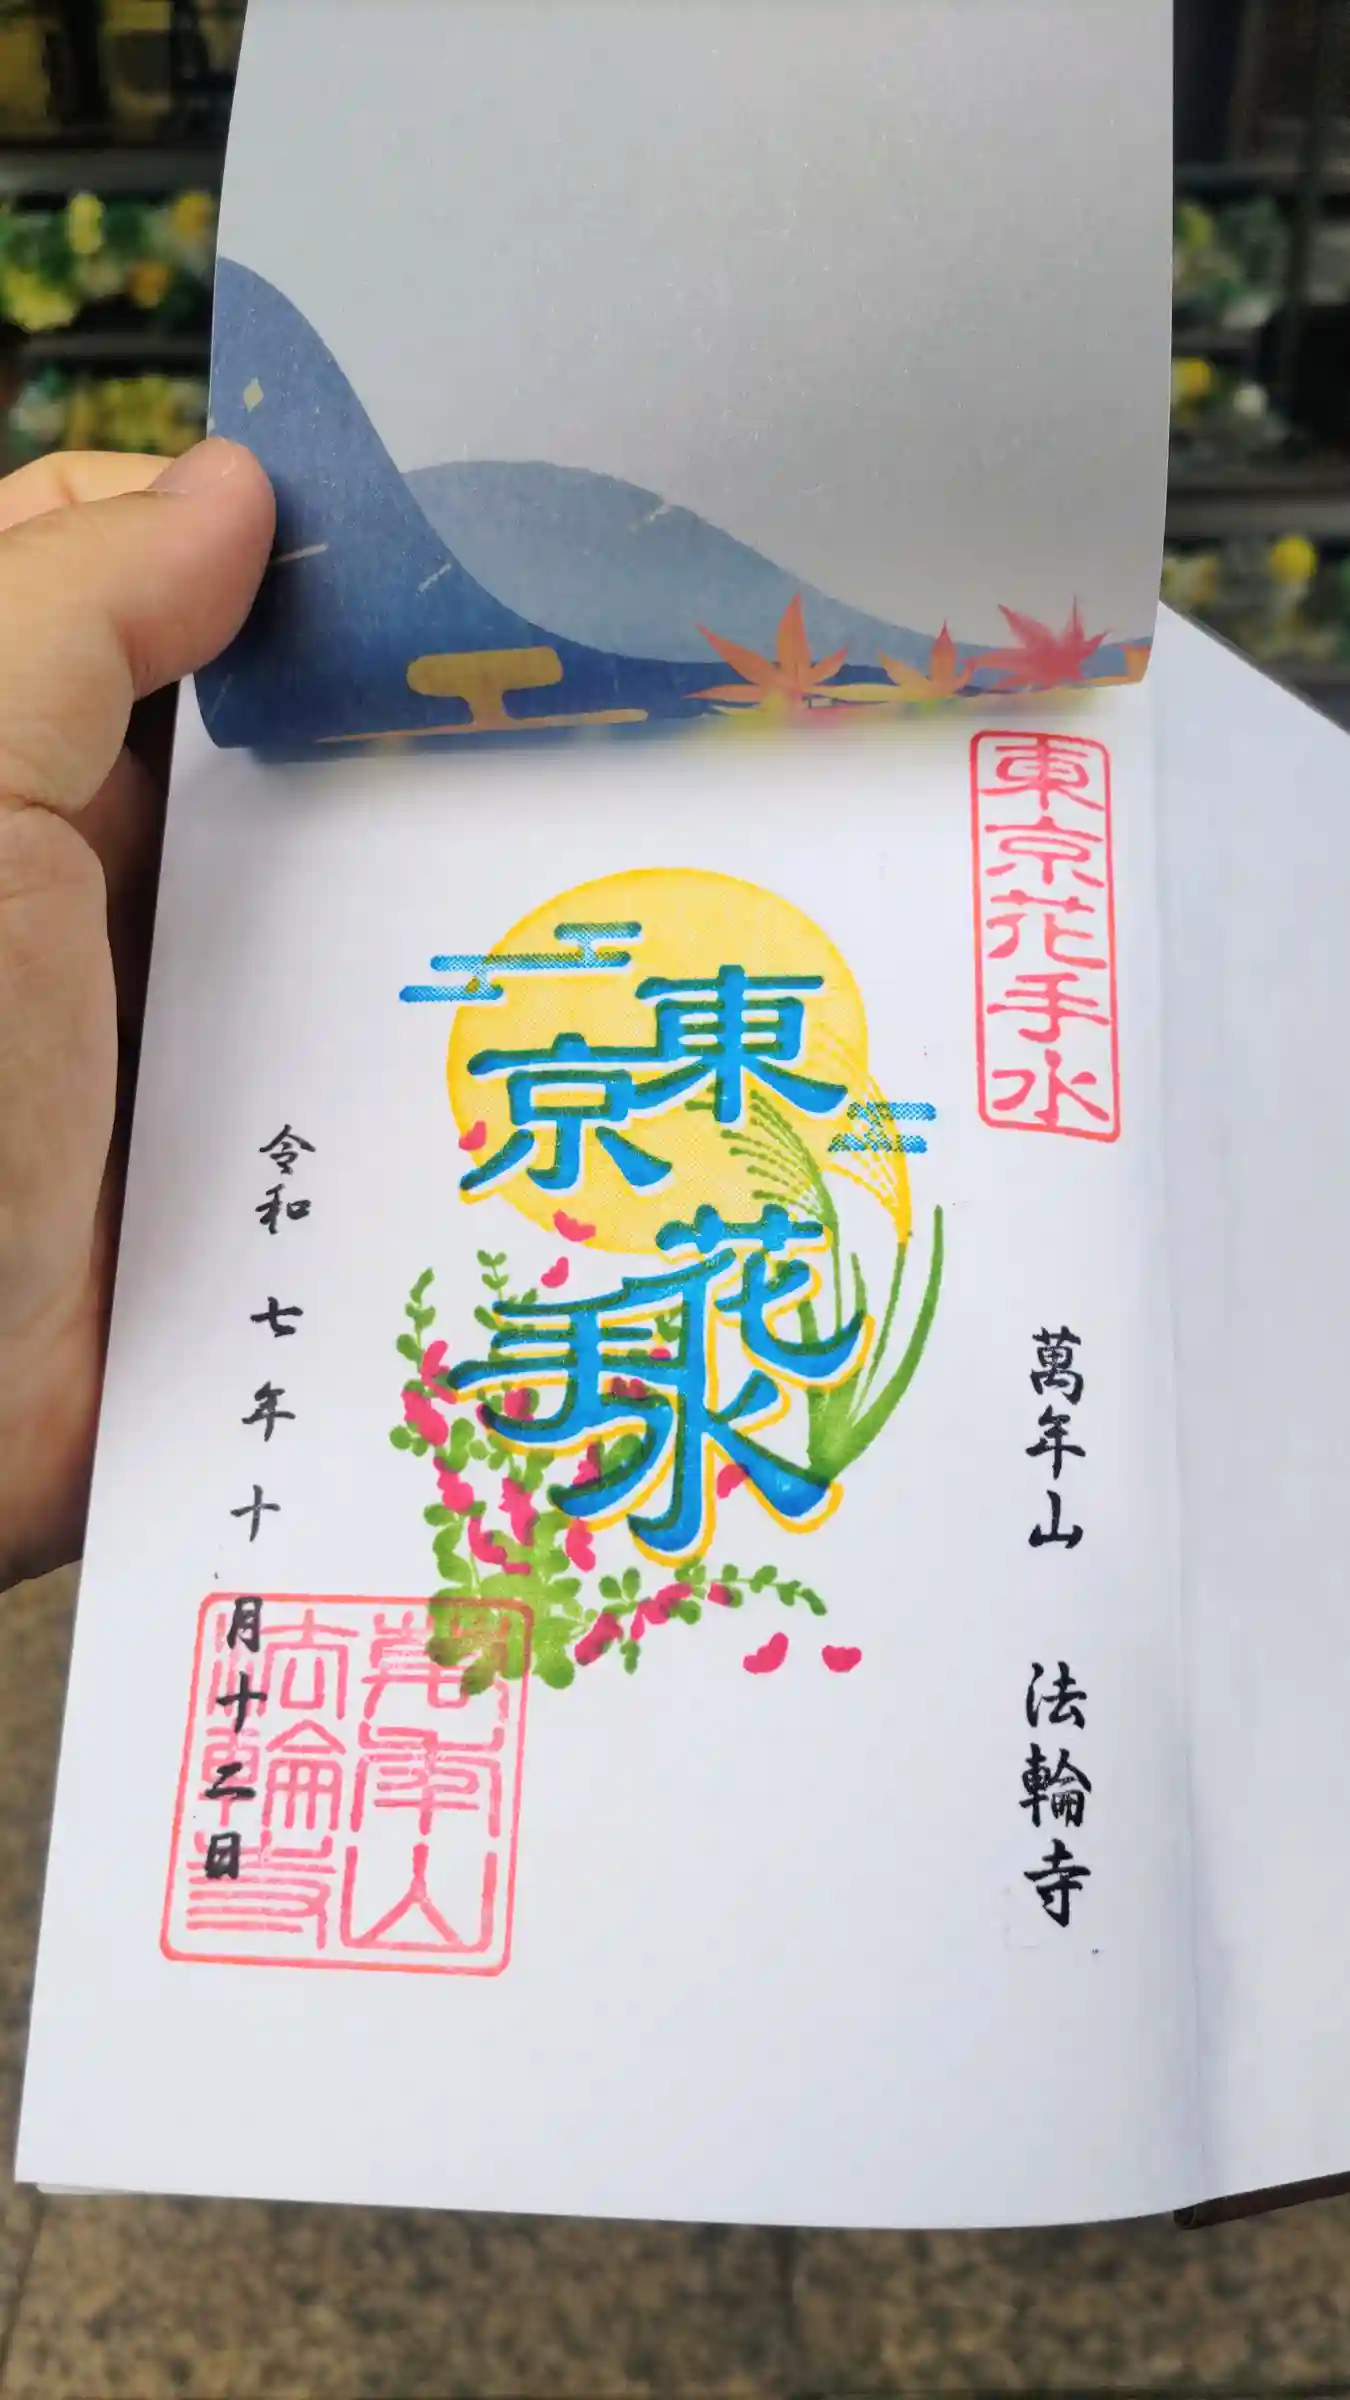 東京花手水
萬年山 法輪寺
東京
花手水
令和七年十月十二日
萬年山
法輪寺